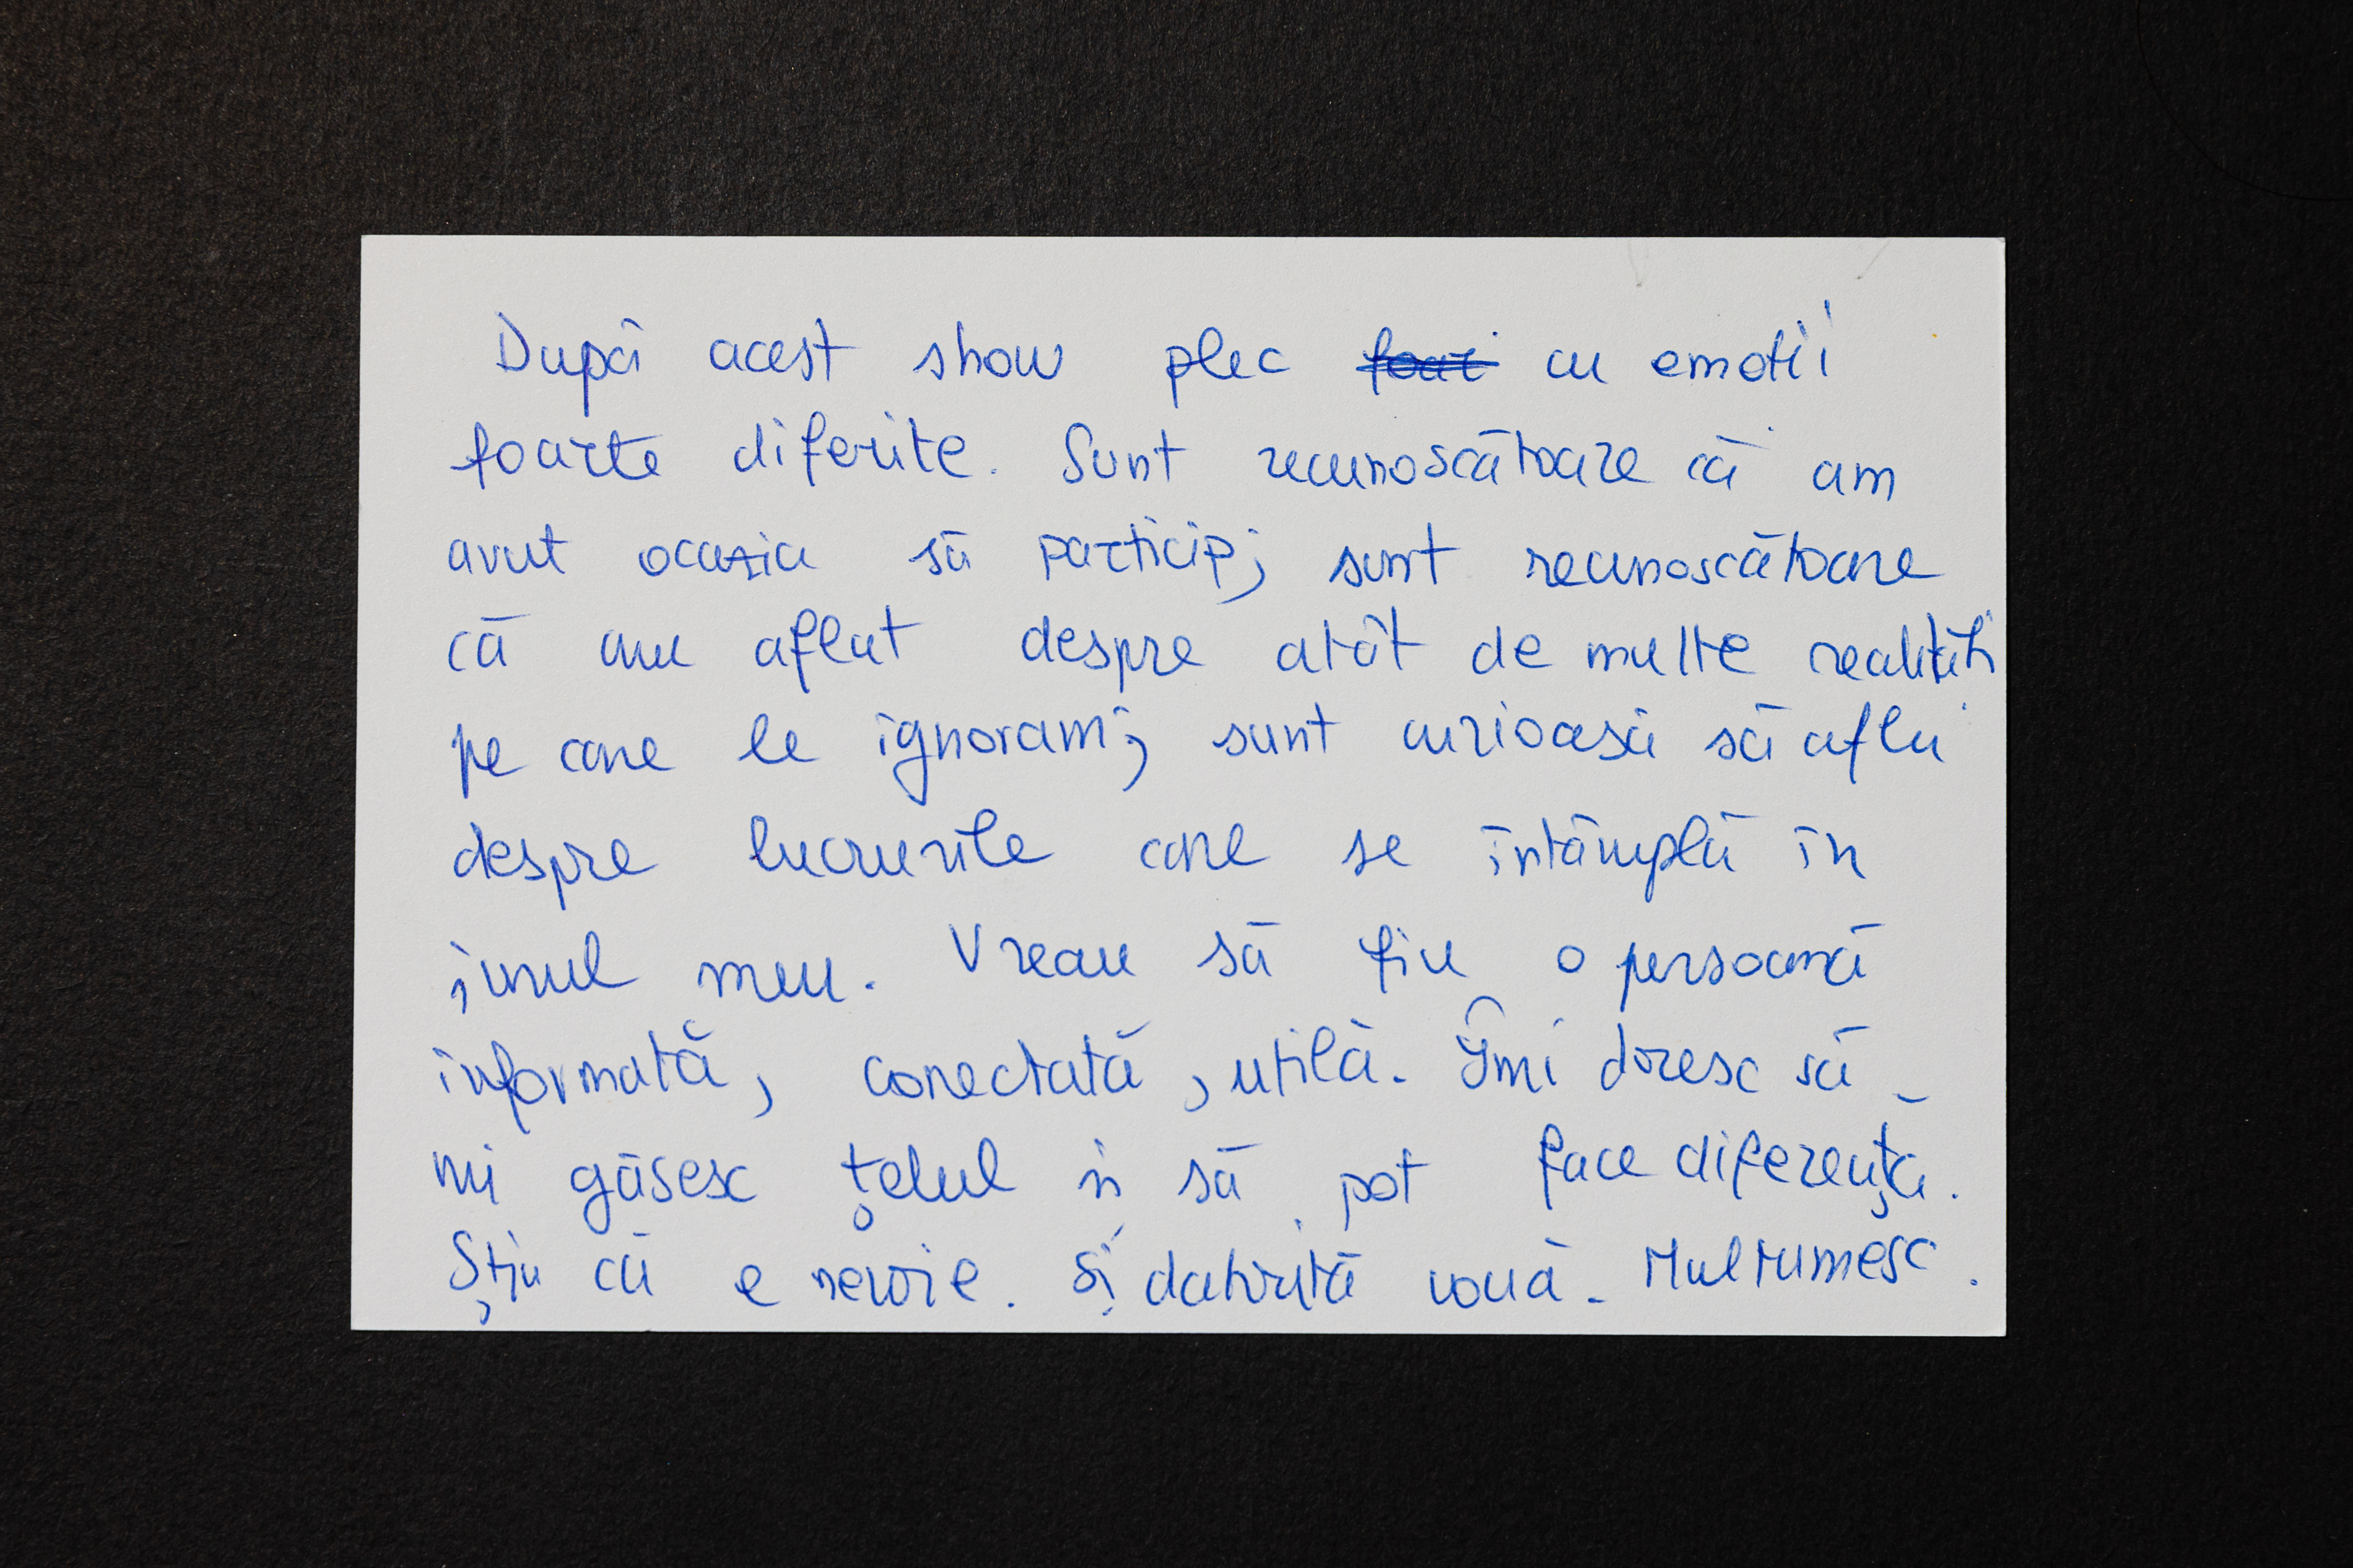 După acest show plec cu emotii
foarte diferite. Sunt recunoscătoare că am
avut ocazia să particip; sunt recunoscătoare
că am aflat despre atât de multe realități
pe care le ignoram; sunt curioasă să aflu
despre lucrurile care se întâmplă în
jurul meu. Vreau să fiu o persoană
informată, conectată, utilă. Îmi doresc să
mi găsesc țelul și să pot face diferența.
Știu că e nevoie. Și datorită vouă. Multumesc.